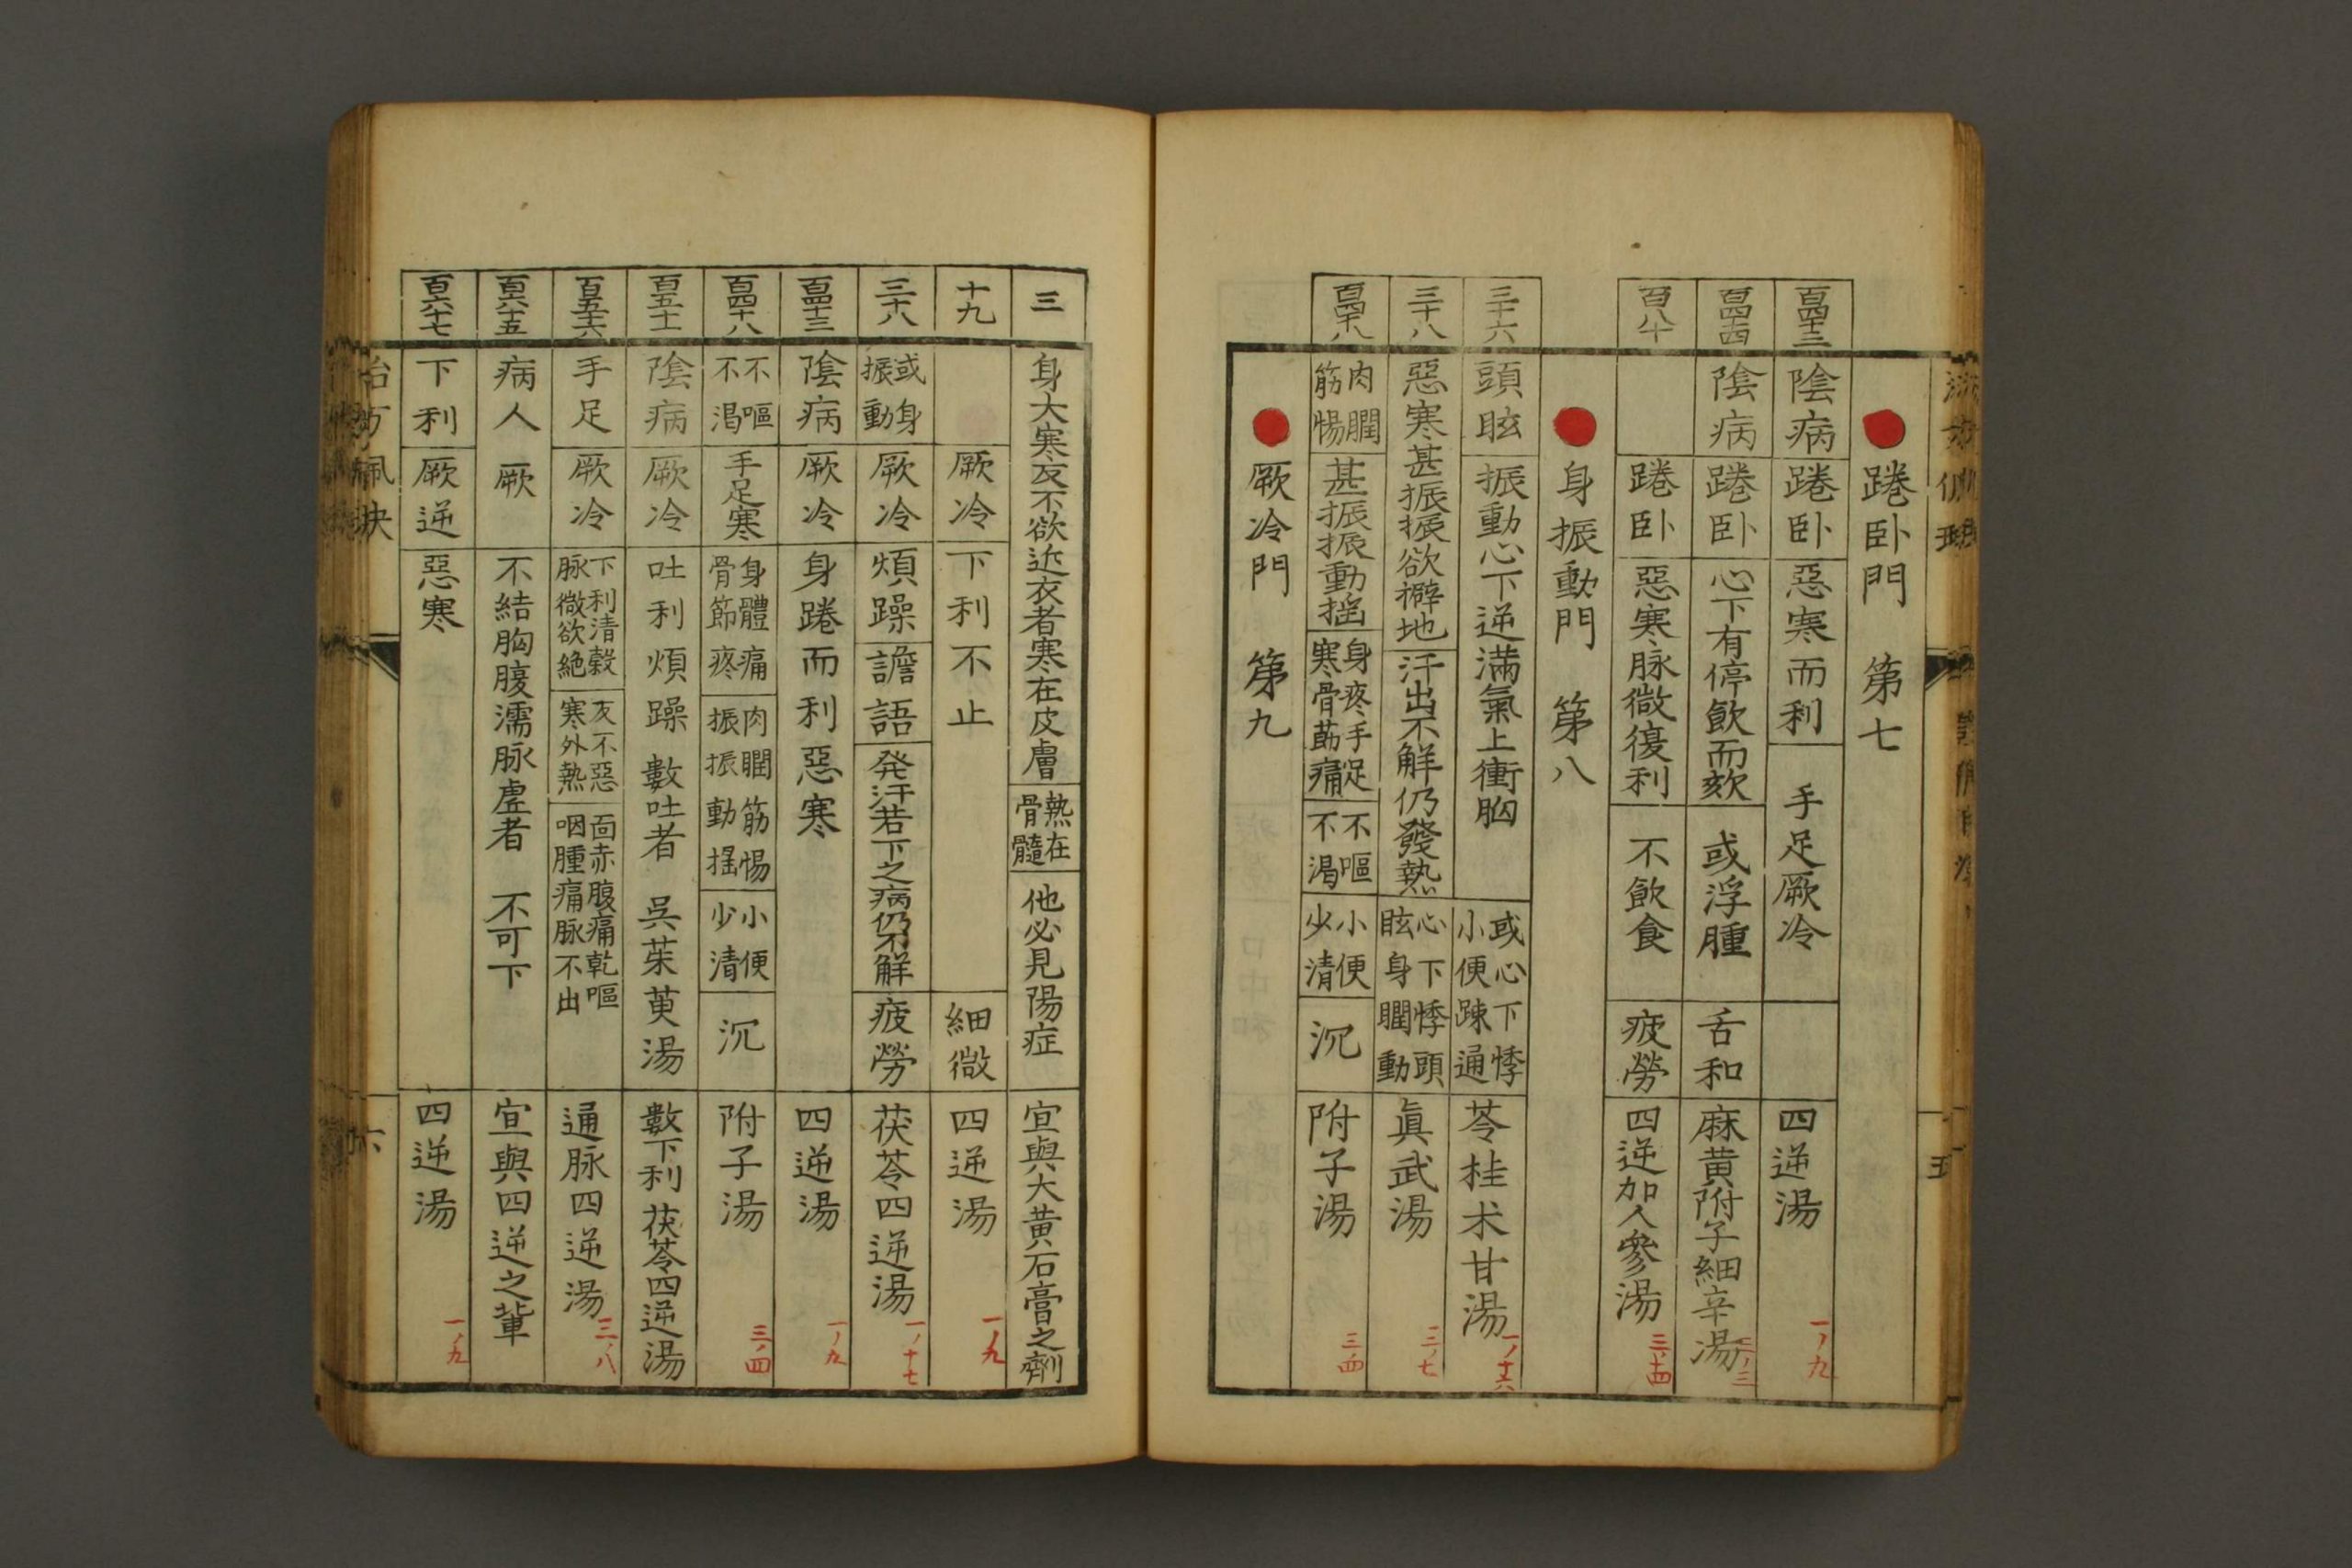 ● 踡卧門 第七
百四十三 陰病 踡卧 惡寒而利 手足厥冷 四逆湯 一ノ九
百四十四 陰病 踡卧 心下有停飲而欬 或浮腫 舌和 麻黄附子細辛湯 三ノ三
百八十 踡卧 惡寒脉微復利 不飲食 疲勞 四逆加人參湯 三ノ十四
● 身振動門 第八
三十六 頭眩 振動心下逆滿氣上衝胸 或心下悸小便踈通 苓桂朮甘湯 一ノ十六
三十八 惡寒甚振振欲擗地 汗出不解仍發熱 心下悸頭眩身瞤動 眞武湯 三ノ七
百四十八 肉瞤筋惕 甚振振動揺 身疼手足寒骨節痛 不嘔不渇 小便少清 沉 附子湯 三ノ四
● 厥冷門 第九
三 身大寒反不欲近衣者寒在皮膚 熱在骨髓 他必見陽症 宜與大黄石膏之劑
十九 厥冷 下利不止 細微 四逆湯 一ノ九
三十八 或身振動 厥冷 煩躁 譫語 発汗若下之病仍不解 疲勞 茯苓四逆湯 一ノ十七
百四十三 陰病 厥冷 身踡而利惡寒 四逆湯 一ノ九
百四十八 不嘔不渇 手足寒 身體痛骨節疼 肉瞤筋惕振振動揺 小便少清 沉 附子湯 三ノ四
百五十一 陰病 厥冷 吐利煩躁 數吐者 呉茱萸湯 數下利 茯苓四逆湯
百五十六 手足 厥冷 下利清穀脉微欲絶 反不惡寒外熱 面赤腹痛乾嘔咽腫痛脉不出 通脉四逆湯 三ノ八
百六十五 病人 厥 不結胸腹濡脉虚者 不可下 宜與四逆之輩
百六十七 下利 厥逆 惡寒 四逆湯 一ノ九
六